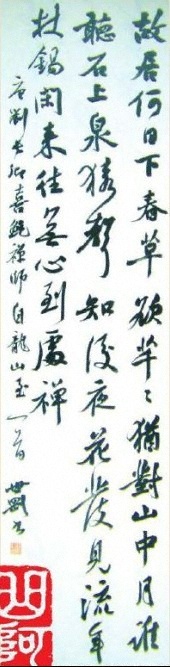 故居何日下春草欲芊〻猶對山中月誰
聽石上泉猿聲知後夜花發見流年
杖錫閑来往無心到處禅
唐劉長卿喜鮑禅師自龍山至一首 世